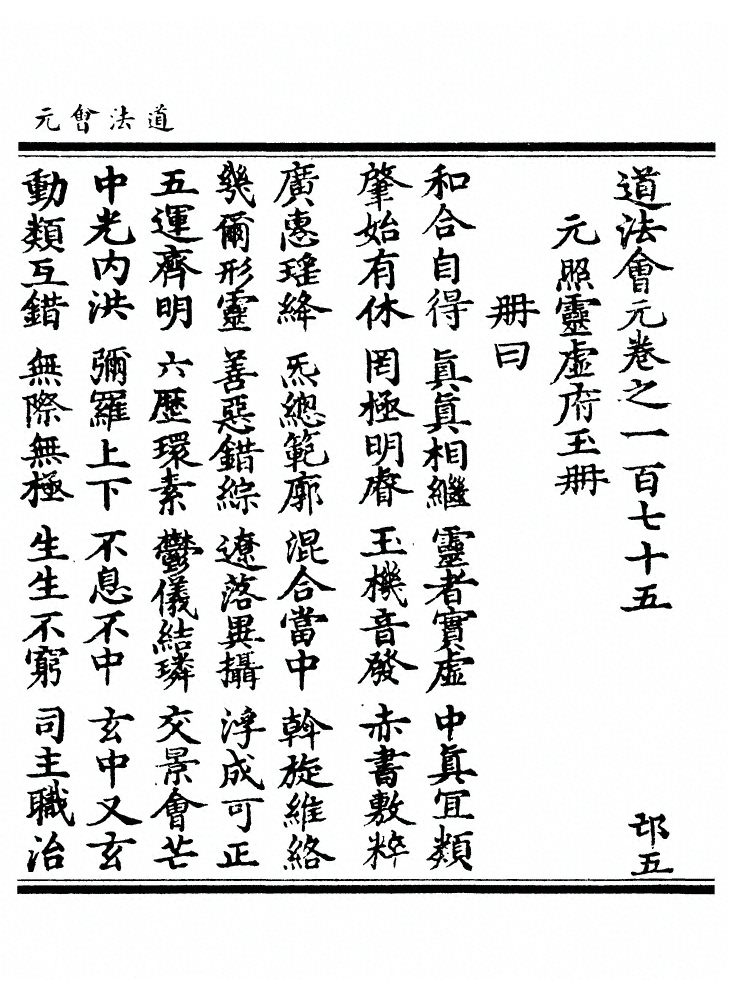 道法會元
道法會元卷之一百七十五 邙五
元照靈虛府玉冊
冊曰
和合自得 眞眞相繼 靈者實虛 中眞冝類
肇始有休 罔極明睿 玉機音發 赤書敷粹
廣惠瑤絳 炁總範廓 混合當中 斡旋維絡
幾爾形靈 善惡錯綜 遼落異攝 浮成可正
五運齊明 六歷環素 鬱儀結璘 交景會芒
中光內洪 彌羅上下 不息不中 玄中又玄
動類互錯 無際無極 生生不窮 司主職治